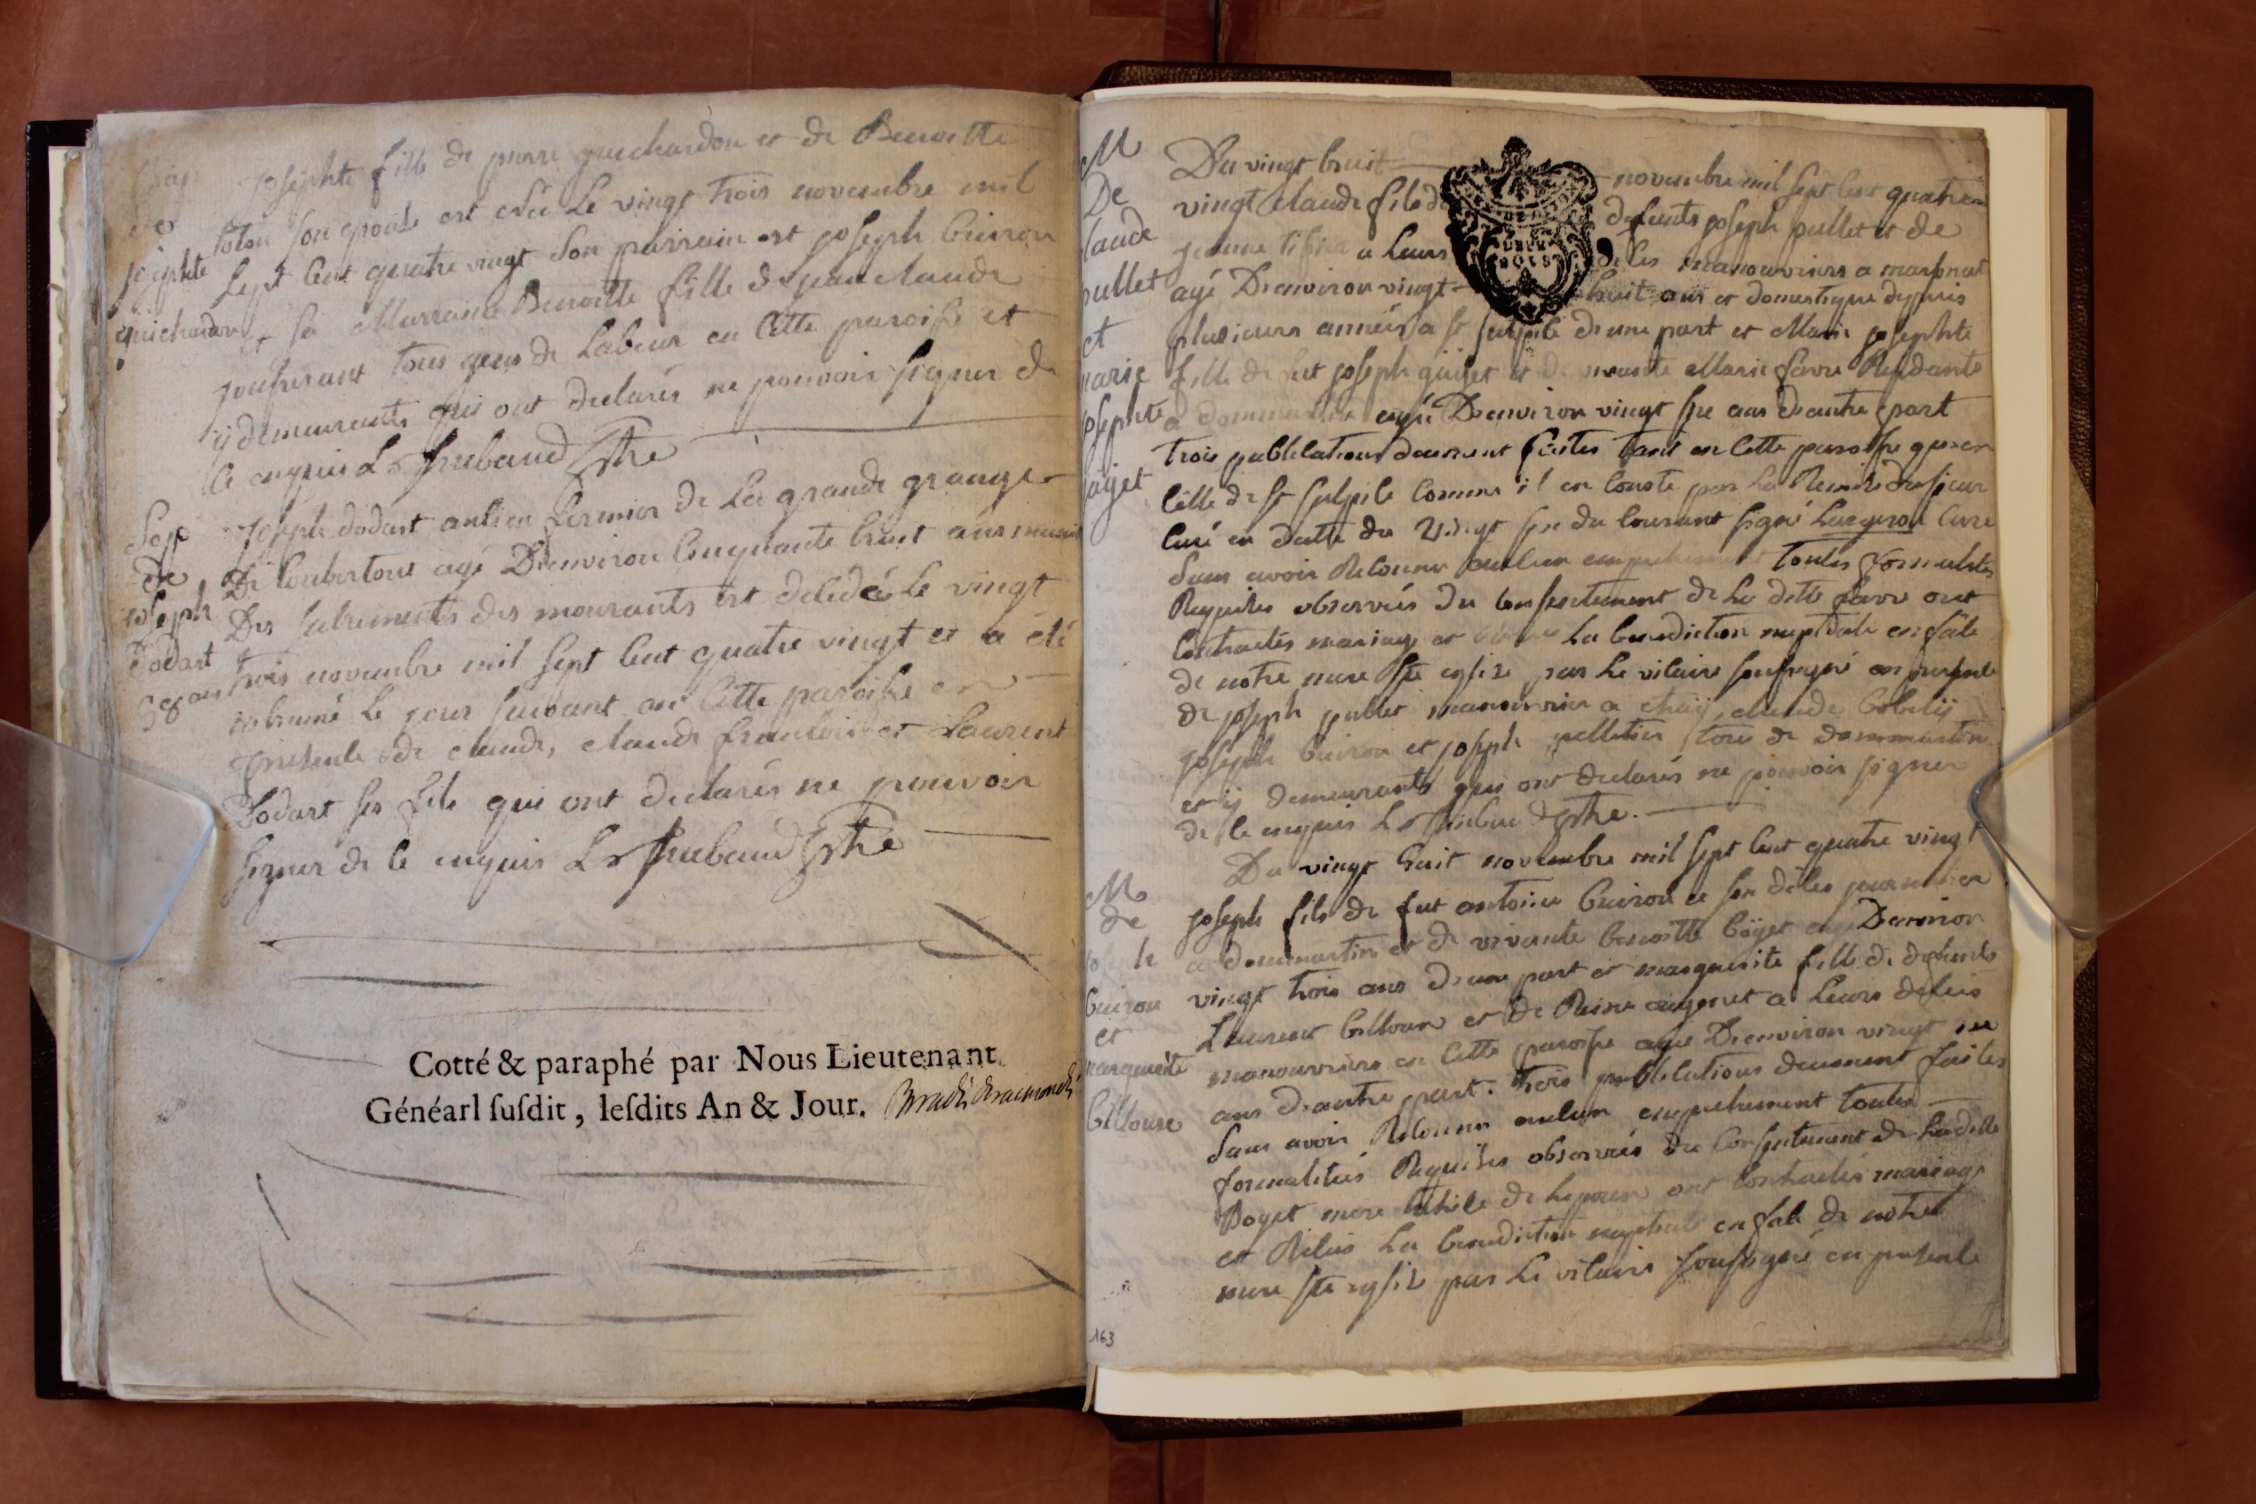 Bap
de
josephte
guichardon
josephte fille de pierre guichardon et de Benoitte
son epouse est née Le vingt trois novembre mil
sept cent quatre vingt son parrain est joseph buiron
et sa Marraine Benoitte fille de jean claude
tous gens de Labeur en cette paroisse et
y demeurants qui ont declarés ne pouvoir signer de
ce enquis
Sep
de
joseph
dodart
58 ans
joseph dodart ancien fermier de La grande grange
De agé D'environ cinquante huit ans muni
Des sacrements des mourants est decedé Le vingt
trois novembre mil sept cent quatre vingt et a été
inhumé Le jour suivant en cette paroisse en
presence de claude, claude francois et Laurent
Dodart ses fils qui ont declarés ne pouvoir
signer de ce enquis
Cotté & paraphé par Nous Lieutenant
Généarl susdit, lesdits An & Jour.
M
De
claude
pullet
et
marie
josephte
Du vingt huit novembre mil sept cent quatre
vingt claude fils de defunts joseph pullet et de
jeanne a Leurs deces manouvriers a
agé D'environ vingt huit ans et domestique depuis
plusieurs années a st sulpice d'une part et Marie josephte
fille de feut joseph et de vivante Marie favre Residante
a dommartin agée D'environ vingt six ans d'autre part
trois publications deument faites tant en cette paroisse qu'en
celle de st sulpice comme il en conste par La Remise du sieur
curé en datte du vingt six du courant signé curé
sans avoir Reconnu aucun empechement toutes formalités
Requises observées Du consentement de La ditte favre ont
contractés mariage et La benediction nuptiale en face
de notre mere Ste eglise par Le vicaire soussigné en presence
de joseph pullet manouvrier a claude
joseph buiron et joseph pelletier tous de dommartin
et y demeurants qui ont declarés ne pouvoir signer
de ce enquis
M
de
buiron
et
marguerite
Du vingt huit novembre mil sept cent quatre vingt
joseph fils de feut antoine buiron a son déces journalier
a dommartin et de vivante benoitte agé D'environ
vingt trois ans d'une part et marguerite fille de defunts
Laurent et de Reine a Leurs deces
manouvriers en cette paroisse agée D'environ vingt
ans d'autre part. trois publications deument faites
sans avoir Reconnu aucun empechement toutes
formalités Requises observées du consentement de Laditte
mere de ont contractés mariage
et La benediction nuptiale en face de notre
mere Ste eglise par Le vicaire soussigné en presence
163